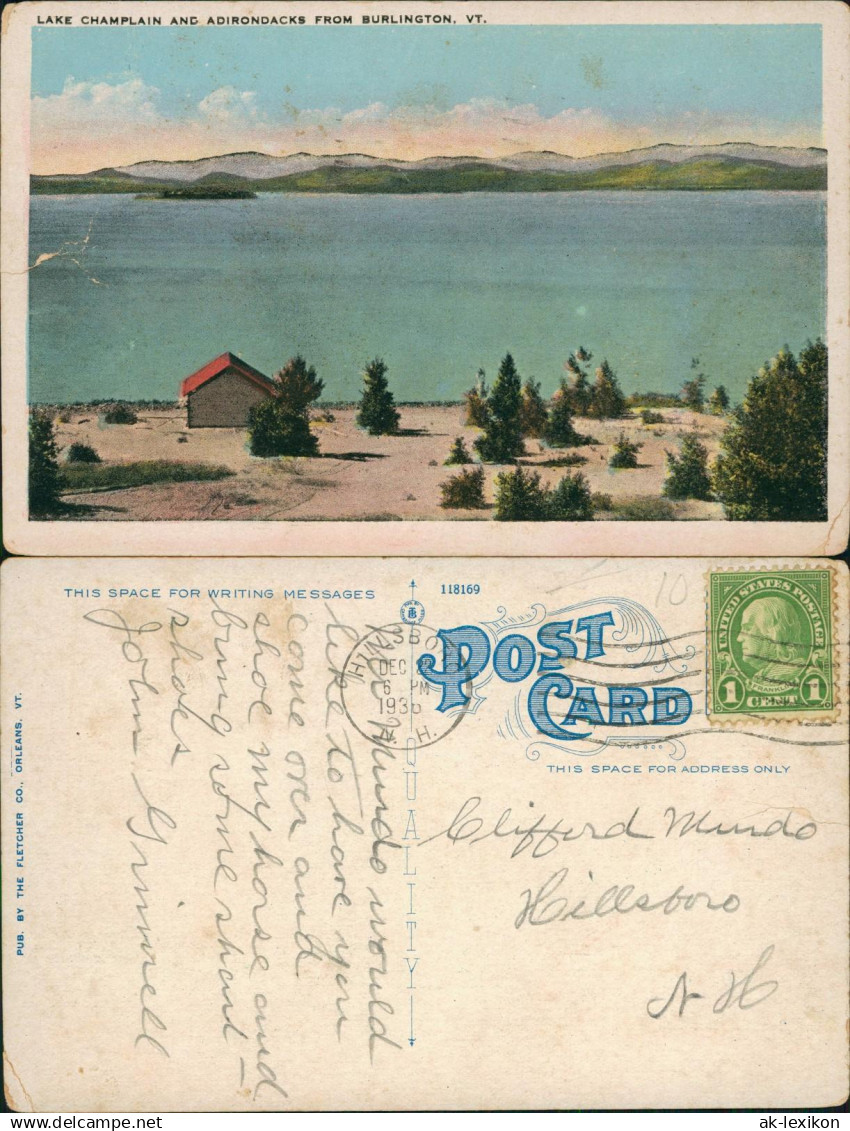 LAKE CHAMPLAIN AND ADIRONDACKS FROM BURLINGTON, VT.
THIS SPACE FOR WRITING MESSAGES
118169
POST
CARD
THIS SPACE FOR ADDRESS ONLY
QUALITY
PUB. BY THE FLETCHER CO., ORLEANS, VT.
DEC
6 PM
1936
N. H.
10
UNITED STATES POSTAGE
FRANKLIN
1 CENT 1
Mr Mundo would
like to have you
come over and
shoe my horse and
bring some short -
shoes
John Grinnell
Clifford Mundo
Hillsboro
N H
ak-lexikon